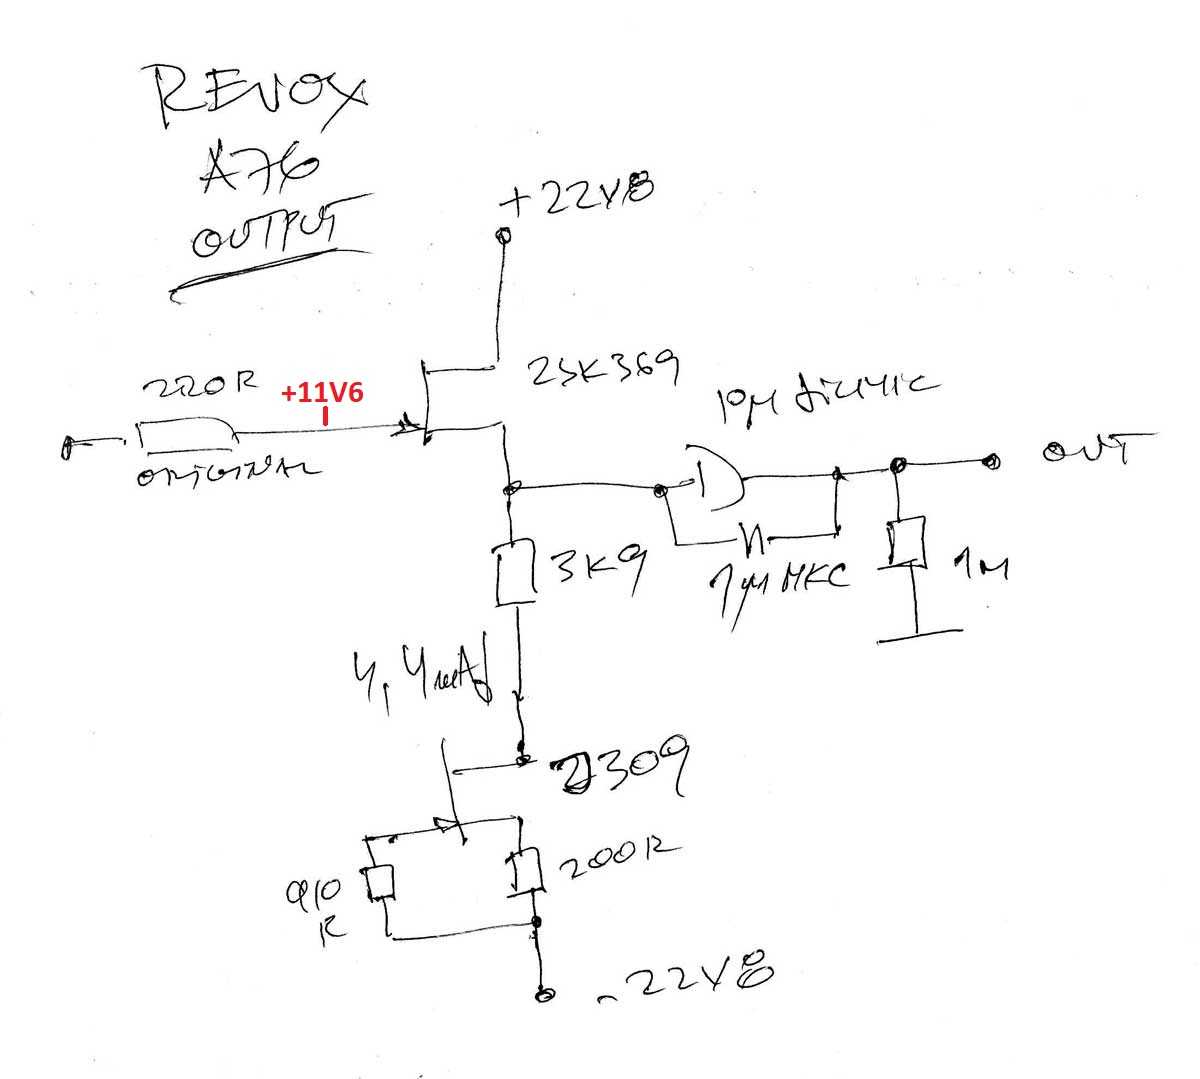 REVOX
A76
OUTPUT
+22V8
220R
+11V6
ORIGINAL
2SK369
OUT
3K9
1µ MKC
1M
4,4mA
J309
910
R
200R
-22V8